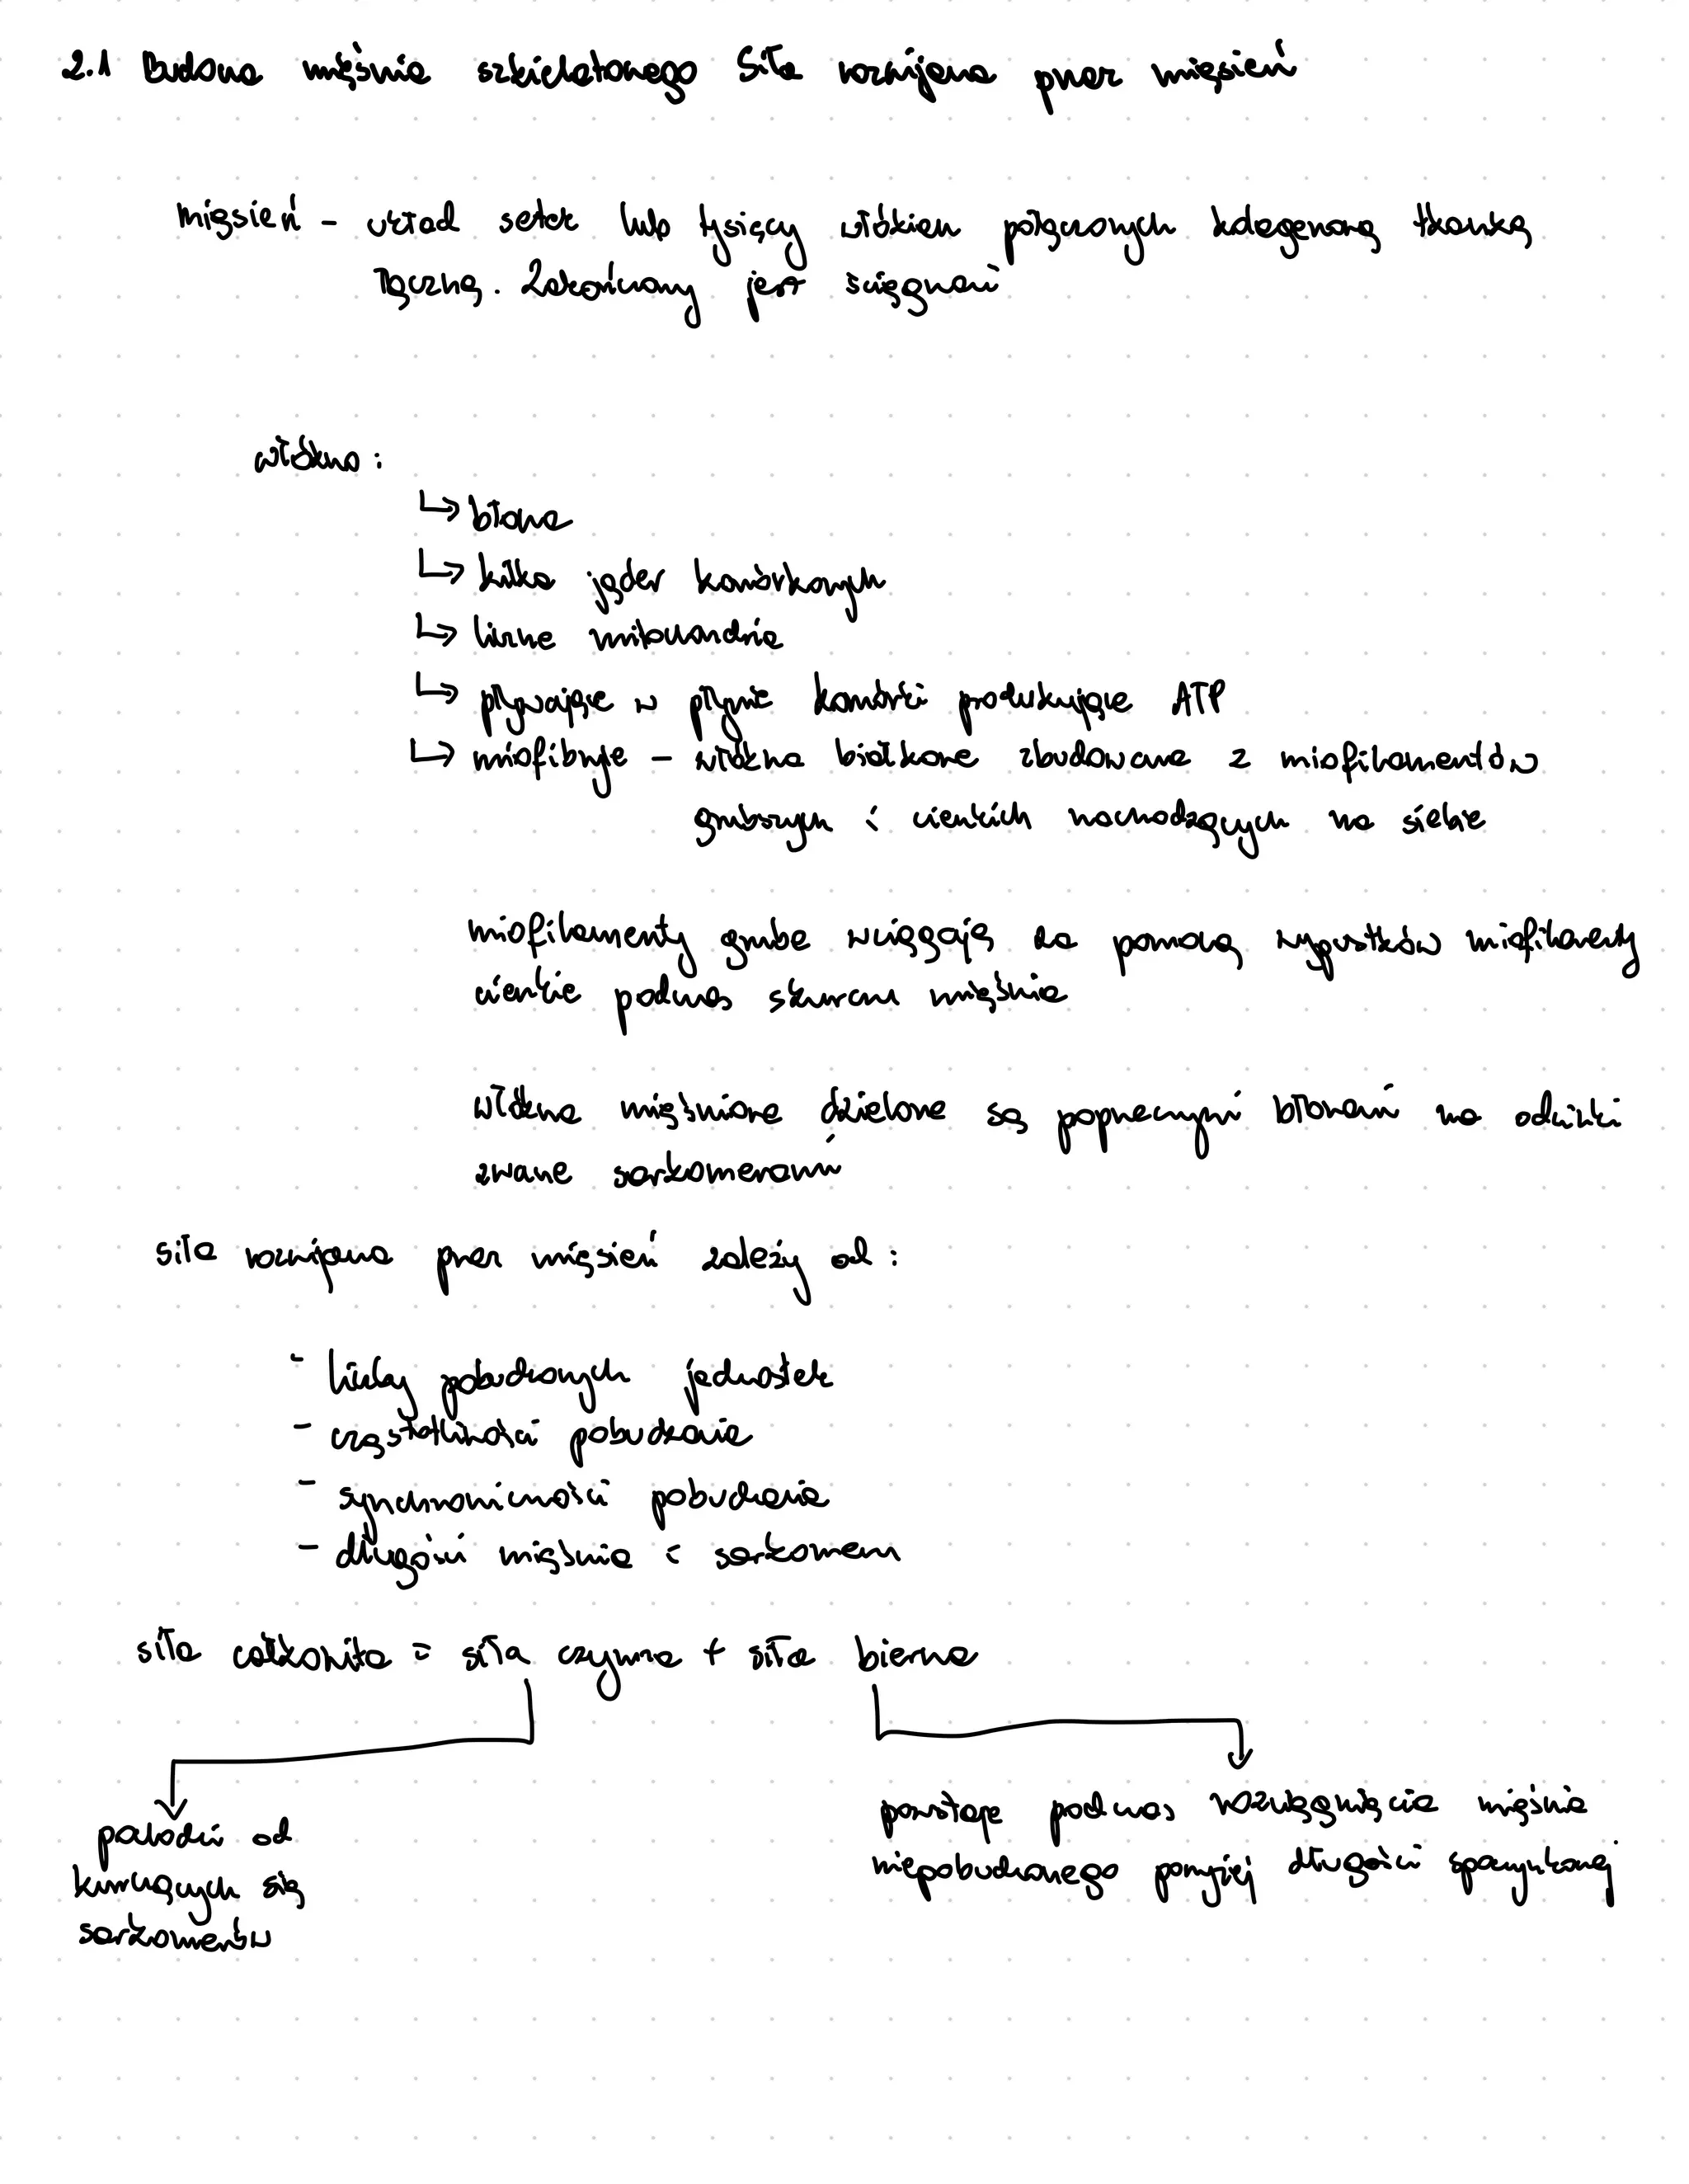 2.1 Budowa mięśnia szkieletowego Siła rozwijana przez mięsień
mięsień - układ setek lub tysięcy włókien połączonych kolagenową tkanką
łączną. Zakończony jest ścięgnami
włókna:
↳ błona
↳ kilka jąder komórkowych
↳ liczne mitochondria
↳ pływające w płynie komórki produkujące ATP
↳ miofibryle - włókna białkowe zbudowane z miofilamentów
grubszych i cienkich nachodzących na siebie
miofilamenty grube wciągają za pomocą wypustków miofilamenty
cienkie podczas skurczu mięśnia
włókna mięśniowe dzielone są poprzecznymi błonami na odcinki
zwane sarkomerami
siła rozwijana przez mięsień zależy od:
- liczby pobudzonych jednostek
- częstotliwości pobudzania
- synchroniczności pobudzania
- długości mięśnia i sarkomeru
siła całkowita = siła czynna + siła bierna
pochodzi od
kurczących się
sarkomerów
powstaje podczas rozciągnięcia mięśnia
niepobudzonego powyżej długości spoczynkowej